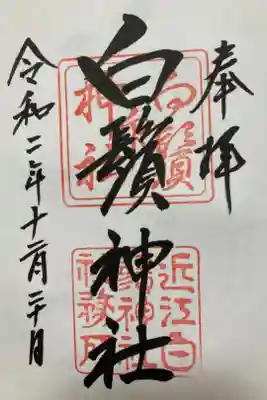 奉拝
白鬚神社
令和二年十一月二十日
白鬚
神社
近江白
鬚神社
社務所